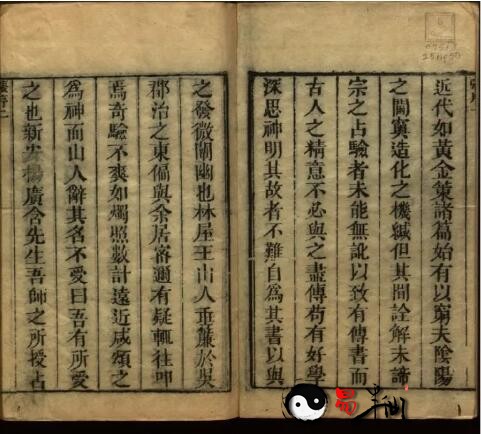 近代如黃金策諸篇始有以窮夫陰陽
之閫奧造化之機緘但其間詮解未諦
宗之占驗者未能無訛以致有傳書而
古人之精意不必與之盡傳苟有好學
深思神明其故者不難自為其書以與
之發微闡幽也林屋王山人垂簾於吳
郡治之東偏與余居密邇有疑輒往叩
焉奇驗不爽如燭照數計遠近咸頌之
為神而山人辭其名不受曰吾有所受
之也新安楊廣含先生吾師之所授占
張序二
易